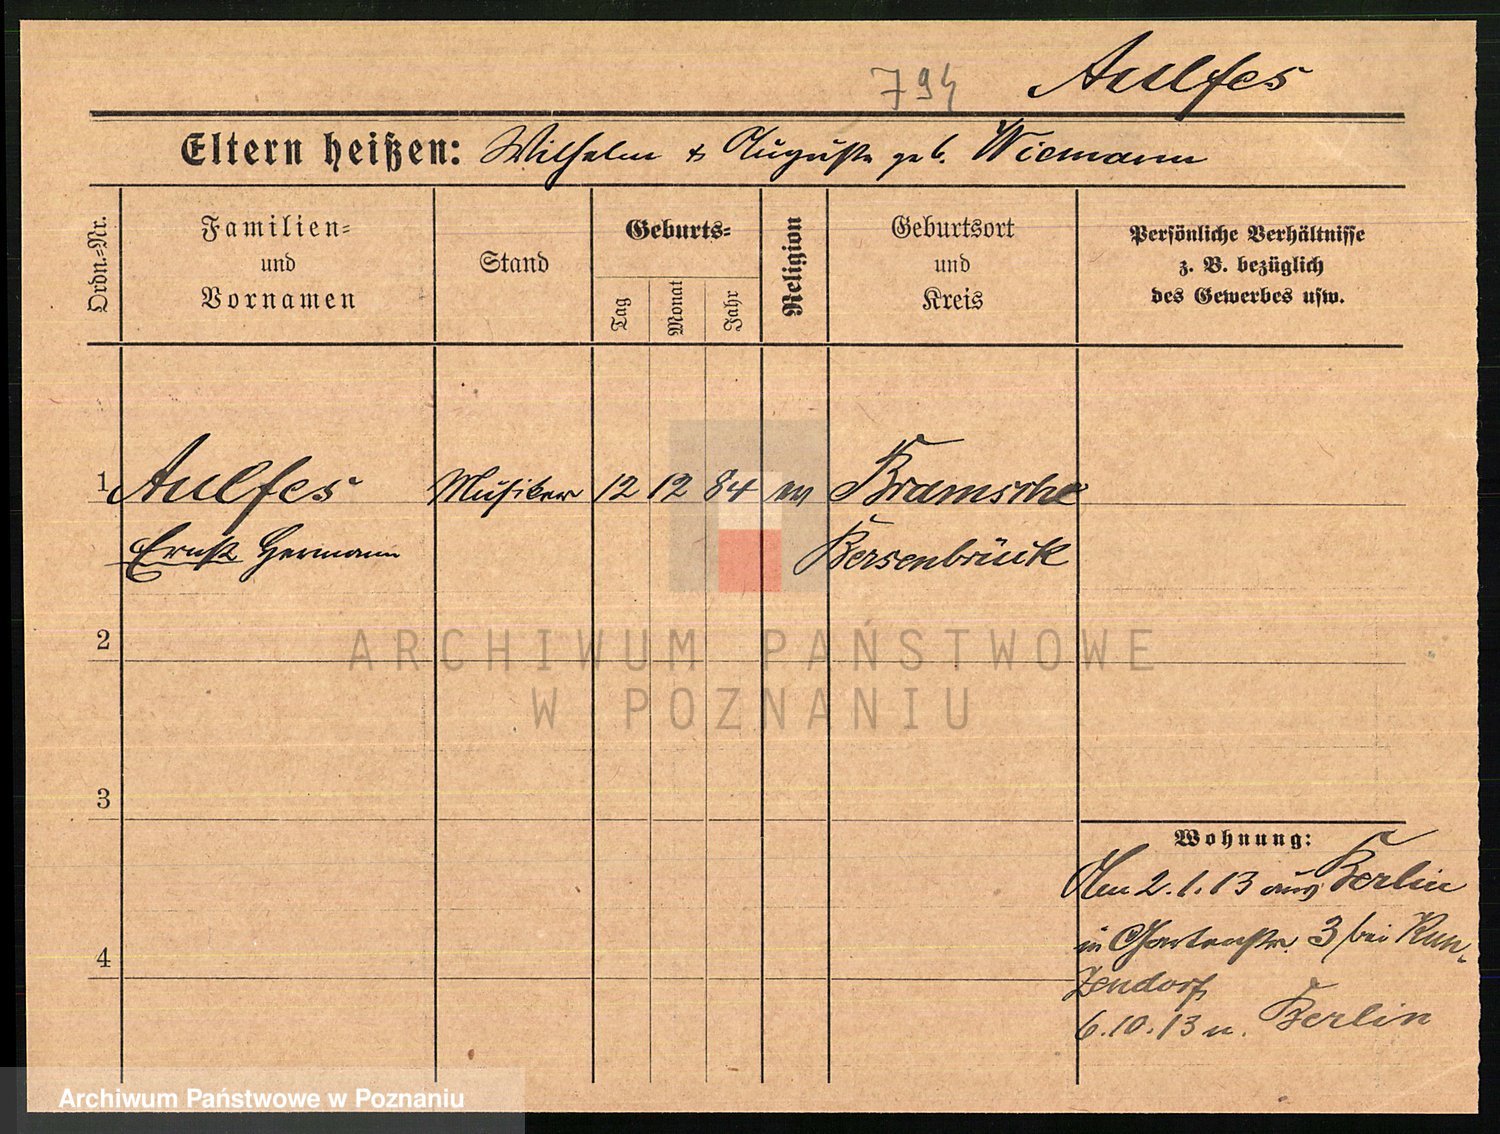 794 Aulfes
Eltern heißen: Wilhelm & Auguste geb. Wiemann
Ordn.-Nr.
Familien-
und
Vornamen
Stand
Geburts-
Tag
Monat
Jahr
Religion
Geburtsort
und
Kreis
Persönliche Verhältnisse
z. B. bezüglich
des Gewerbes usw.
1 Aulfes Musiker 12 12 84 ev Bramsche
Ernst Hermann Bersenbrück
2
3
4
Wohnung:
Am 2.1.13 aus Berlin
in Gartenstr. 3 bei Kun-
zendorf
6.10.13 n. Berlin
ARCHIWUM PAŃSTWOWE
W POZNANIU
Archiwum Państwowe w Poznaniu